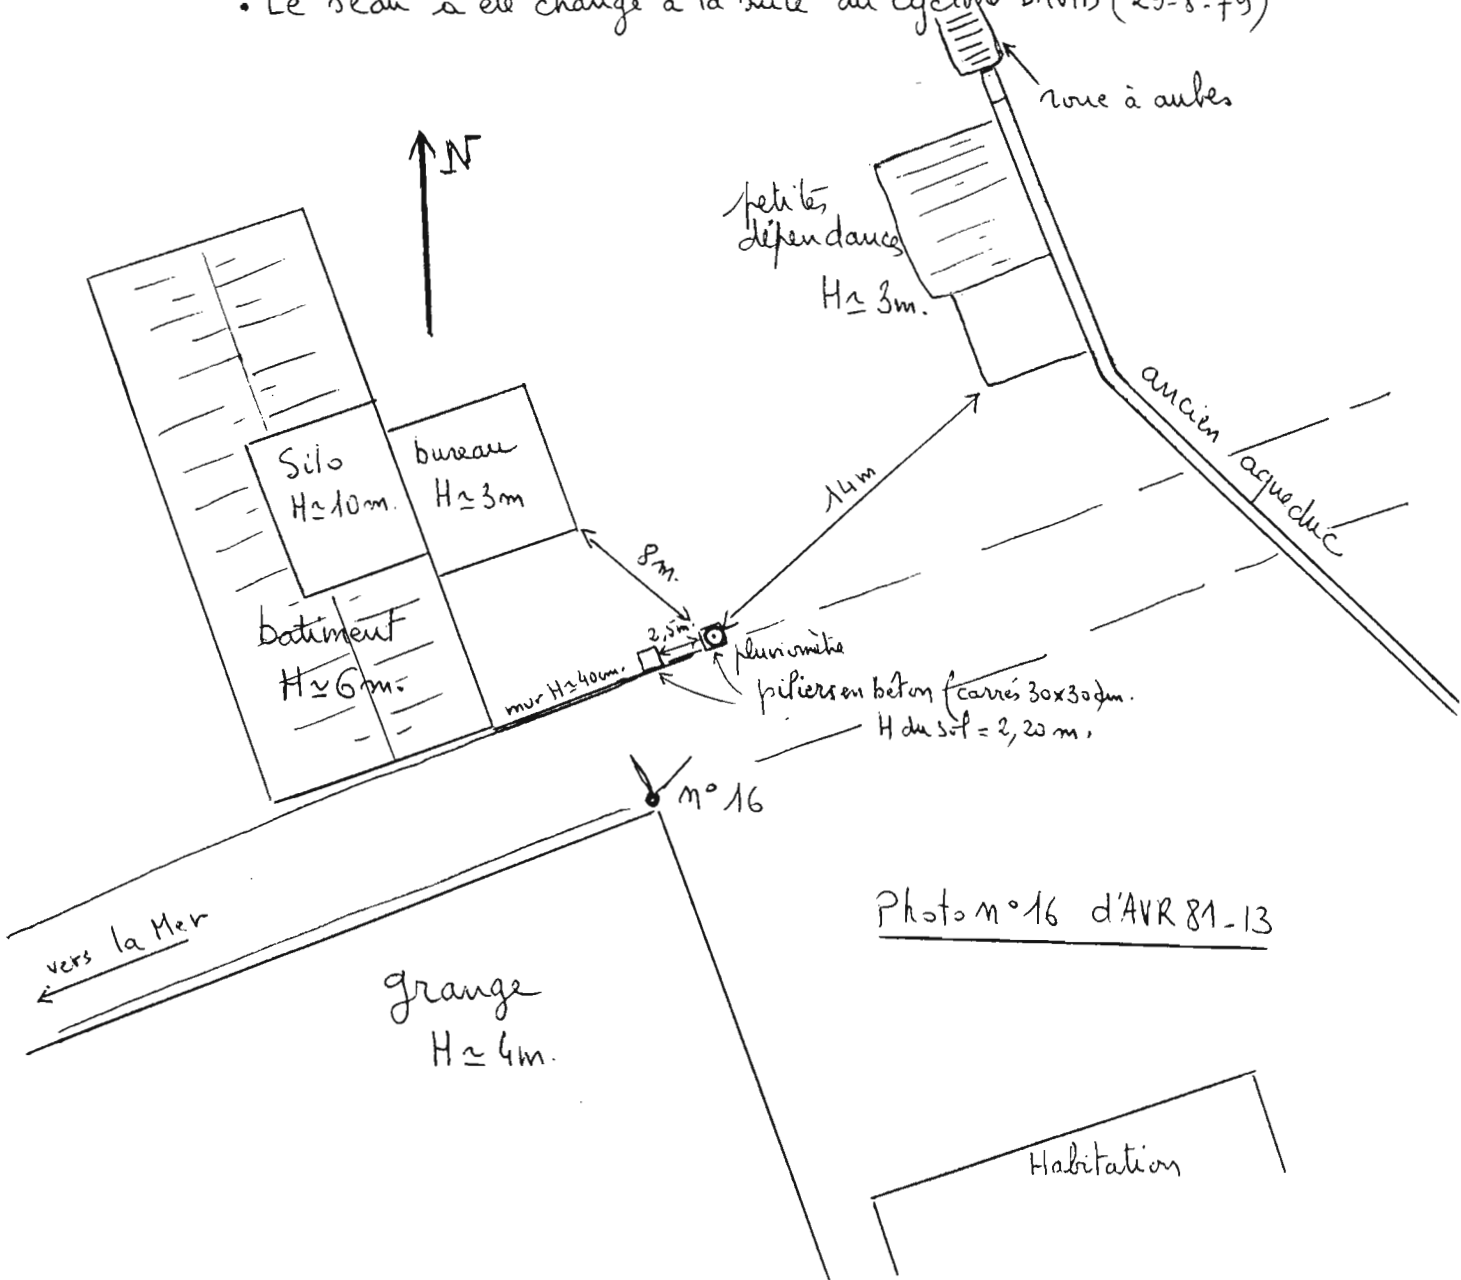 • Le seau a été changé à la suite du cyclone DAVID (29-8-79)
roue à aubes
N
petites
dépendances
H ≃ 3m.
ancien aqueduc
Silo
H ≃ 10m.
bureau
H ≃ 3m
14m
8m.
2,5m.
batiment
H ≃ 6m.
mur H ≃ 40cm.
pluviomètre
piliers en béton (carrés 30x30cm.
H du sol = 2,20 m.
n° 16
vers la Mer
Photo n° 16 d'AVR 81-13
grange
H ≃ 4m.
Habitation